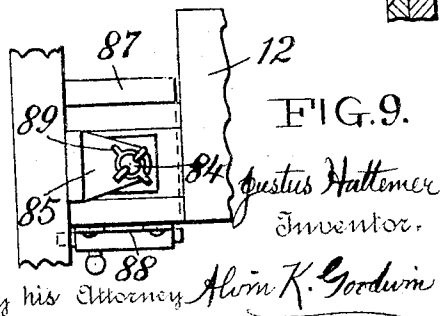 87
12
89
FIG.9.
84
85
Justus Hattemer
Inventor.
88
y his Attorney Alvin K. Goodwin